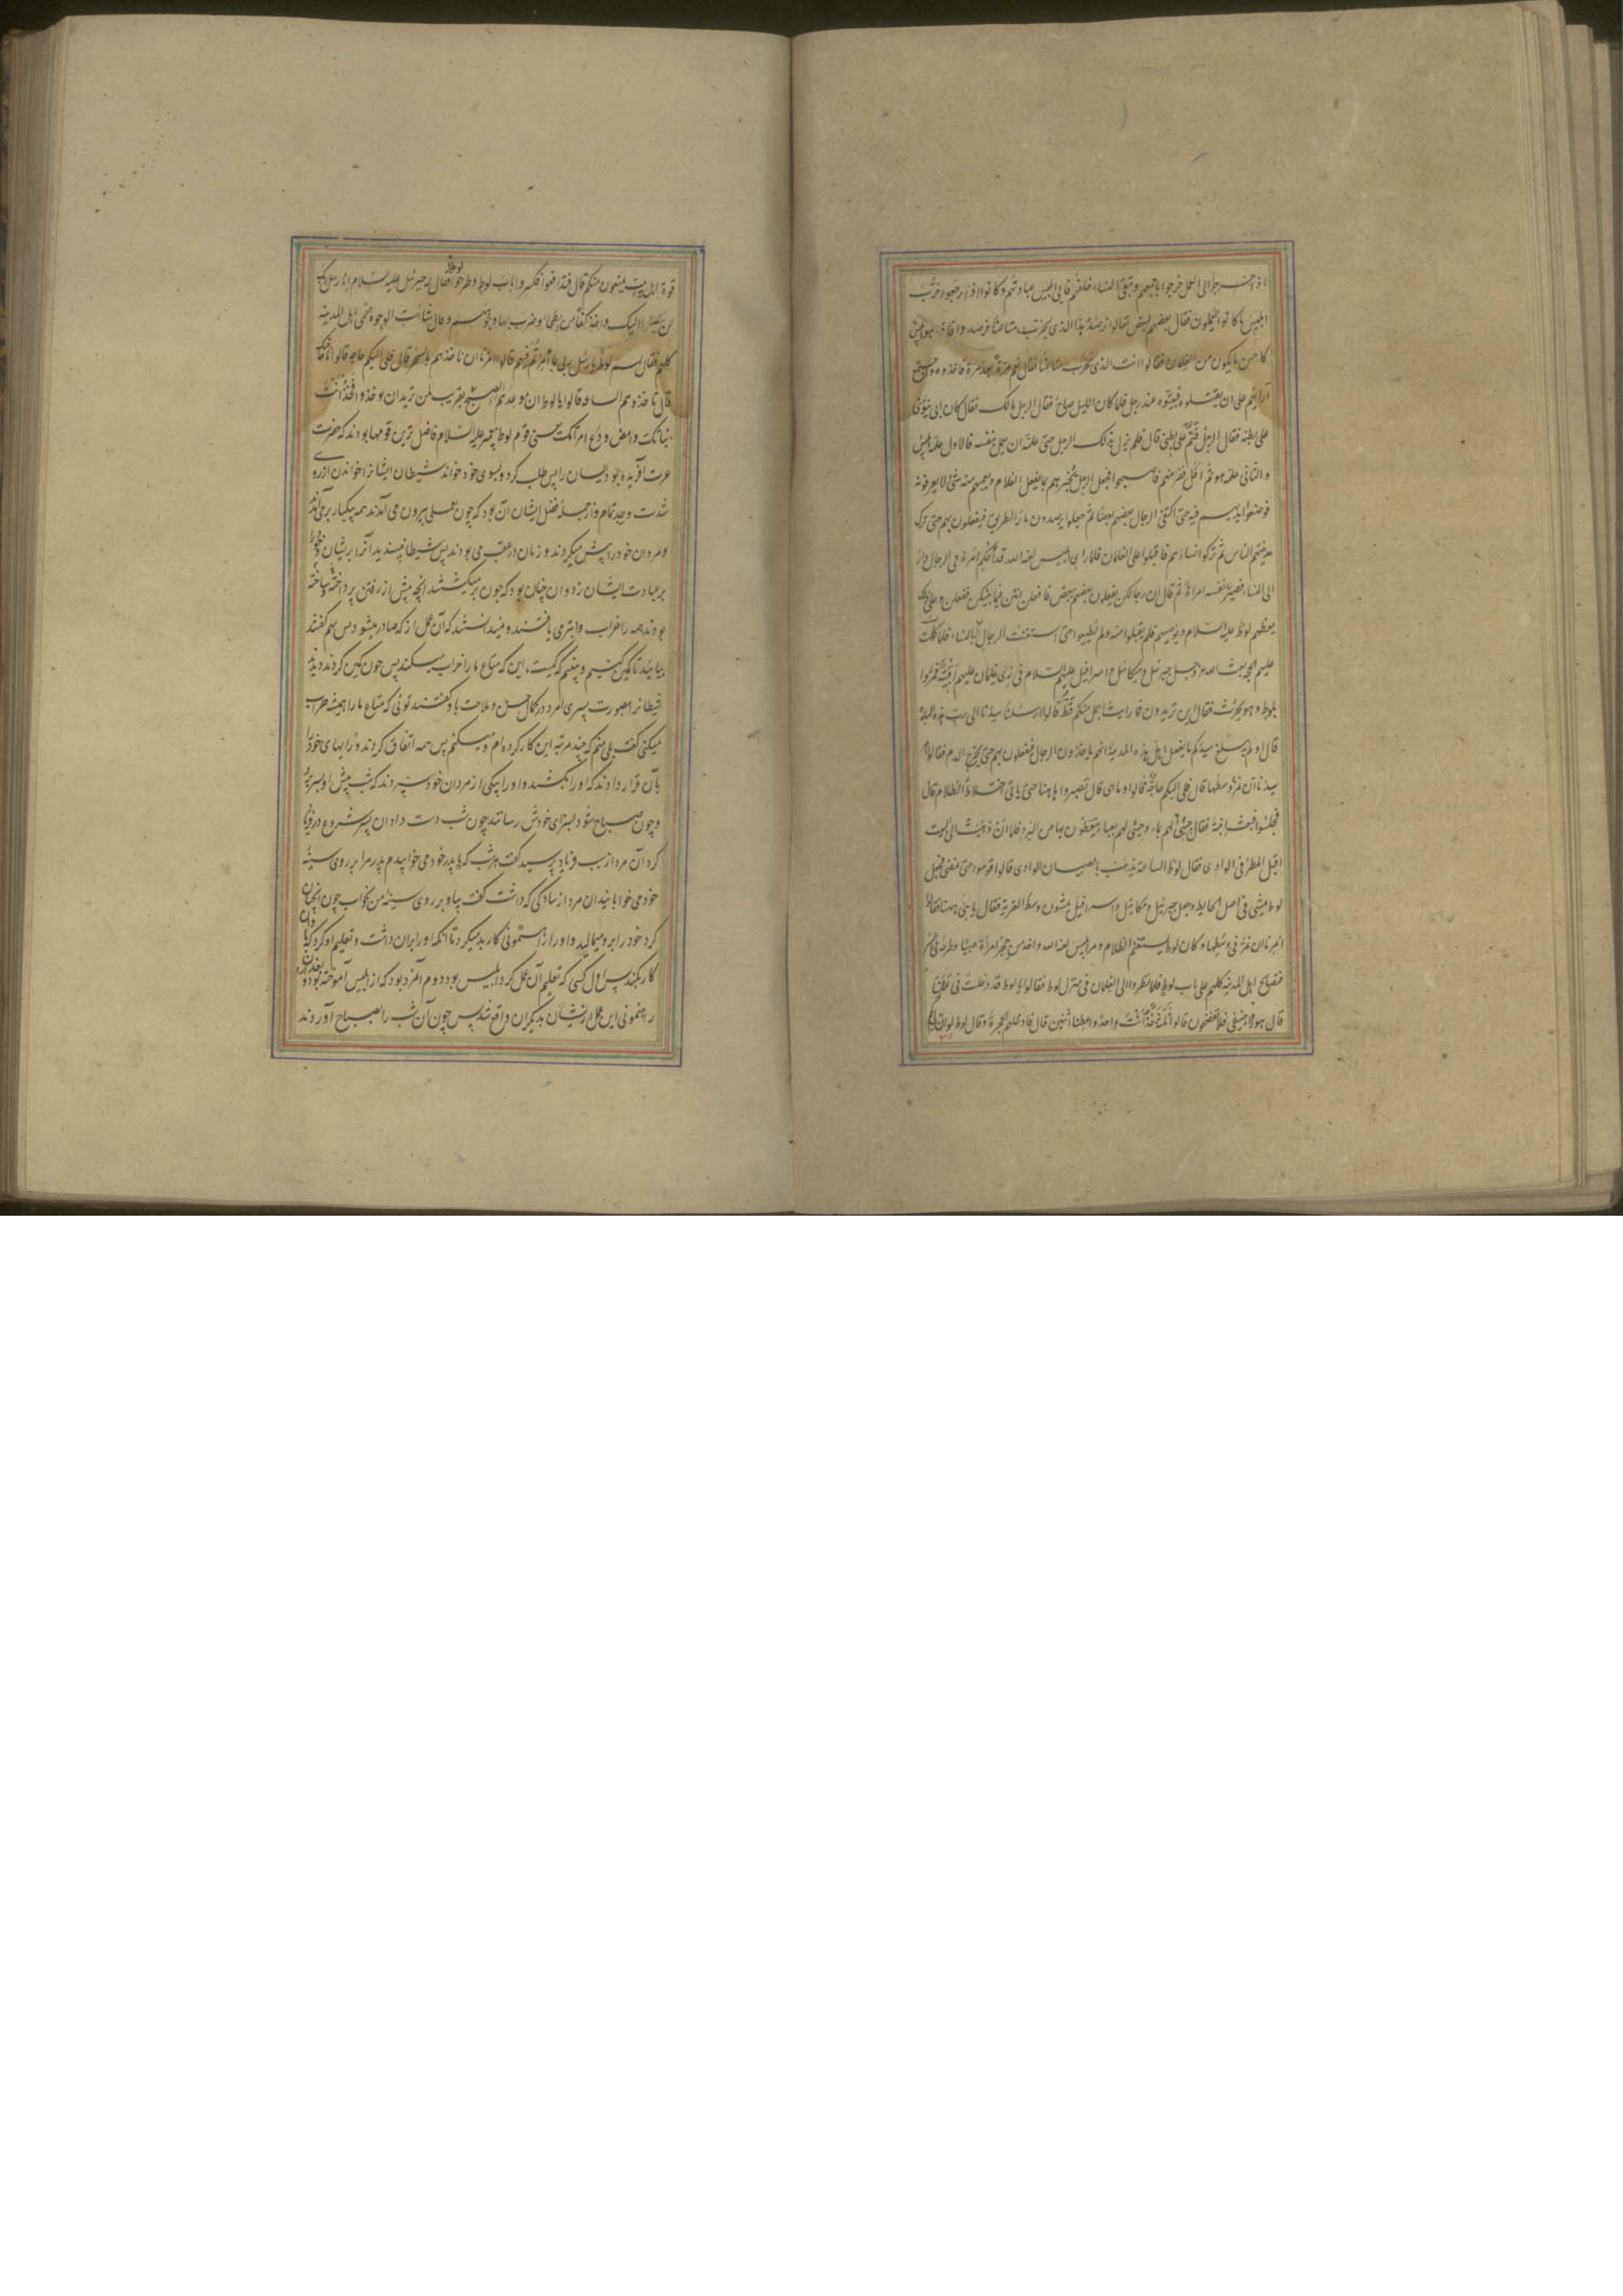 اذا خرجوا الی العمل خرجوا باجمعهم و تبقی النساء خلفهم فاتی ابلیس عبادتهم و کانوا اذا رجعوا خرّب
ابلیس ما کانوا یعملون فقال بعضهم لبعض تعالوا نرصد هذا الذی یخرّب متاعنا فرصدوه فاذا هو غلام
کاحسن ما یکون من الغلمان فقالوا انت الذی تخرّب متاعنا فقال نعم مرّة بعد مرّة فاخذوه و اجتمع
آراؤهم علی ان یقتلوه فبیّتوه عند رجل فلما کان اللیل صاح فقال الرجل مالک فقال کان ابی ینوّمنی
علی بطنه فقال الرجل فنم علی بطنی قال فلم یزل بذلک الرجل حتی علّمه ان یعمل بنفسه فالاول علّمه ابلیس
و الثانی علّمه هو ثم انسلّ ففرّ منهم فاصبحوا فجعل الرجل یخبرهم بما یفعل الغلام و یعجبهم منه شئ لا یعرفونه
فوضعوا ایدیهم فیه حتی اکتفی الرجال بعضهم ببعض ثم جعلوا یرصدون مار الطریق فیفعلون بهم حتی ترک
مدینتهم الناس ثم ترکوا نساءهم فاقبلوا علی الغلمان فلما رای ابلیس لعنه الله قد احکم امره فی الرجال دار
الی النساء فصیّر نفسه امراة ثم قال ان رجالکن یفعلون بعضهم ببعض فافعلن انتن فیما بینکن ففعلن و علی ذلک
یعظهم لوط علیه السلام و یوصیهم فلم یقبلوا منه و لم یطیعوا حتی استغنت الرجال بالرجال و النساء بالنساء فلما کملت
علیهم الحجة بعث الله عز و جل جبرئیل و میکائیل و اسرافیل علیهم السلام فی زیّ غلمان علیهم اقبیة فمرّوا
بلوط و هو یحرث فقال این تریدون فما رایت اجمل منکم قطّ قالوا ارسلنا سیدنا الی رب هذه البلدة
قال او لم یبلغ سیدکم ما یفعل اهل هذه المدینة انهم یاخذون الرجال فیفعلون بهم حتی یخرج الدم فقالوا امرنا
سیدنا ان نمرّ وسطها قال فلی الیکم حاجة قالوا و ما هی قال تصبروا هاهنا حتی یاتی اختلاط الظلام قال
فجلسوا فبعث ابنته فقال جیئی لهم بماء و جیئی لهم بعباء یتغطّون بها من البرد فلما ان ذهبت الی البیت
اقبل المطر فی الوادی فقال لوط الساعة یذهب بالصبیان الوادی قالوا قوموا حتی نمضی فجعل
لوط یمشی فی اصل الحایط و جعل جبرئیل و میکائیل و اسرافیل یمشون وسط القریة فقال یا بنیّ ههنا فقالوا
امرنا ان نمرّ فی وسطها و کان لوط یستغنم الظلام و مرّ ابلیس لعنه الله و اخذ من حجر امرأة صبیّا و طرحه فی بئر
فتصایح اهل المدینة کلهم علی باب لوط فلما نظروا الی الغلمان فی منزل لوط فقالوا یا لوط قد دخلت فی عملنا
قال هؤلاء ضیفی فلا تفضحون قالوا ثلثة خذ انت واحدا و اعطنا اثنین قال فادخلهم الحجرة و قال لوط لو ان لی
قوة اهل بیت یمنعون منکم قال فتدافعوا فکسروا باب لوط و طرحوا لوطا فقال له جبرئیل علیه السلام انّا رسل ربک
لن یصلوا الیک و اخذ کفا من بطحاء فضرب بها وجوههم و قال شاهت الوجوه فعمی اهل المدینة
کلهم فقال لهم لوط یا رسل ربی بما امرتم فیهم قالوا امرنا ان ناخذهم بالسحر قال فلی الیکم حاجة قالوا و ما حاجتک
قال تاخذوهم الساعة قالوا یا لوط ان موعدهم الصبح ا لیس الصبح بقریب لمن ترید ان یوخذ فخذ انت
بناتک و امض و دع امراتک یعنی قوم لوط پیغمبر علیه السلام فاضل ترین قومها بودند که حضرت
عزت آفریده بود ابلیس ایشان را پس طلب کرد و بسوی خود خواند شیطان ایشانرا خواندن از روی
شدت و جد تمام و از جمله فضل ایشان آن بود که چون بعملی بیرون می آمدند همه بیکبار بر می آمدند
و مردان خود را پیش میکردند و زنان در عقب می بودند پس شیطان پسندید آنرا برایشان خود را
بر عبادت ایشان زد و ان چنان بود که چون بر میکشتند انچه پیش از رفتن پرداخته و ساخته
بودند همه را خراب و ابتر می یافتند و نمیدانستند که آن عمل از که صادر میشود پس بهم گفتند
بیایید تا کمین کنیم و ببینیم که کیست این که متاع ما را خراب میکند پس چون کمین کردند دیدند
شیطانرا بصورت پسری امرد در کمال حسن و ملاحت باو گفتند توئی که متاع ما را همیشه خراب
میکنی گفت بلی منم که چند مرتبه این کار کرده ام و میکنم پس همه اتفاق کردند و رایهای خود را
بآن قرار دادند که او را بکشند و او را بیکی از مردان خود سپردند که شب پیش او بسر برد
و چون صباح شود بسزای خودش رسانند چون شب دست داد ان پسر شروع در فریاد
کرد آن مرد از سبب فریاد پرسید گفت هر شب که با پدر خود می خوابیدم پدر مرا بر روی سینه
خود می خوابانید ان مرد از سادگی که داشت گفت بیا و بر روی سینه من بخواب چون انچنان
کرد خود را برو میمالید و او را رهنمونی کار بد میکرد تا آنکه او را بران داشت و تعلیم او کرد که با او ان
کار بکند پس اول کسی که تعلیم آن عمل کرد ابلیس بود و دوم آنمرد بود که از ابلیس آموخته بود و بعد از ان
رهنمونی این عمل از ایشان بدیگران واقع شد پس چون آن شب را بصباح آوردند